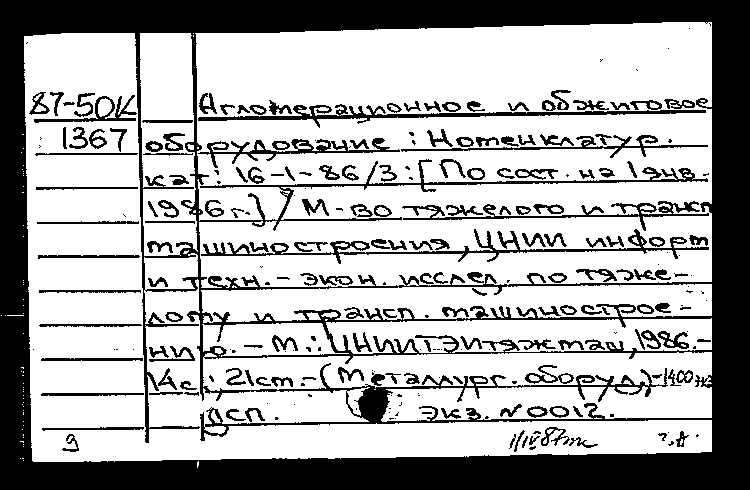 87-50К Агломерационное и обжиговое
1367 оборудование : Номенклатур.
кат: 16-1-86/3 : [По сост. на 1 янв.
1986 г.] / М-во тяжелого и трансп
машиностроения, ЦНИИ информ
и техн.-экон. исслед. по тяже-
лому и трансп. машинострое-
нию. - М.: ЦНИИТЭИтяжмаш, 1986.-
14с.; 21см.-(Металлург. оборуд.)-1400 экз
ДСП. экз. N0012.
9